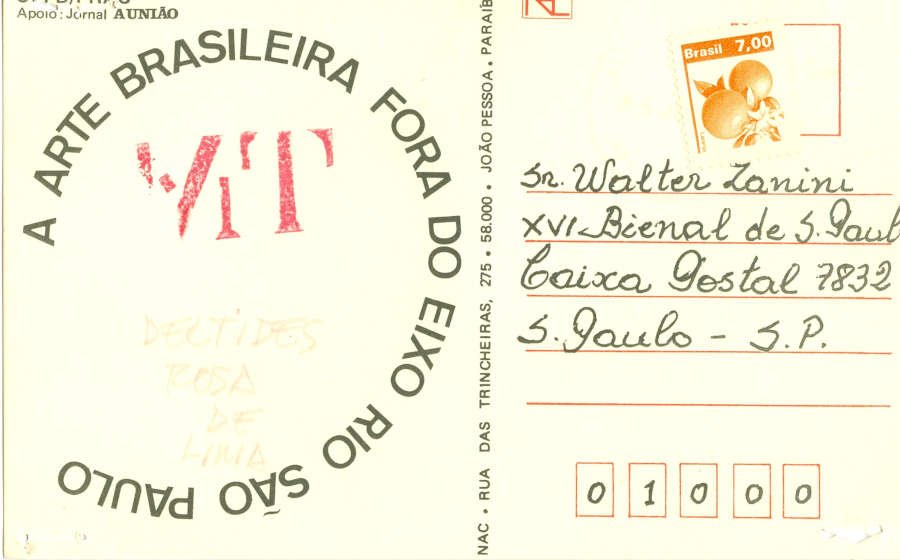 Apoio: Jornal A UNIÃO
A ARTE BRASILEIRA FORA DO EIXO RIO SÃO PAULO
ROSA
DE
LIMA
NAC • RUA DAS TRINCHEIRAS, 275 • 58.000 • JOÃO PESSOA. PARAIB
Brasil 7,00
Sr. Walter Zanini
XVI Bienal de S. Paul
Caixa Postal 7832
S. Paulo - S.P.
0 1 0 0 0